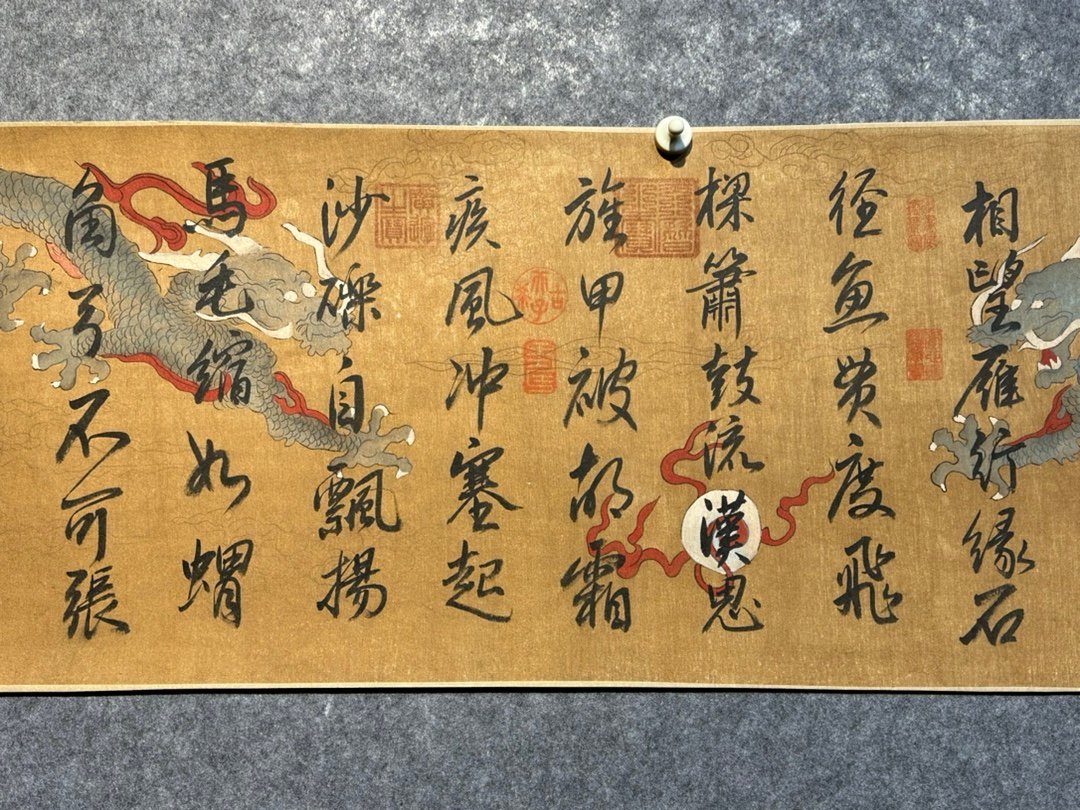 相望雁行緣石
徑魚貫度飛
樑簫鼓流漢思
旌甲被胡霜
疾風冲塞起
沙礫自飄揚
馬毛縮如蝟
角弓不可張